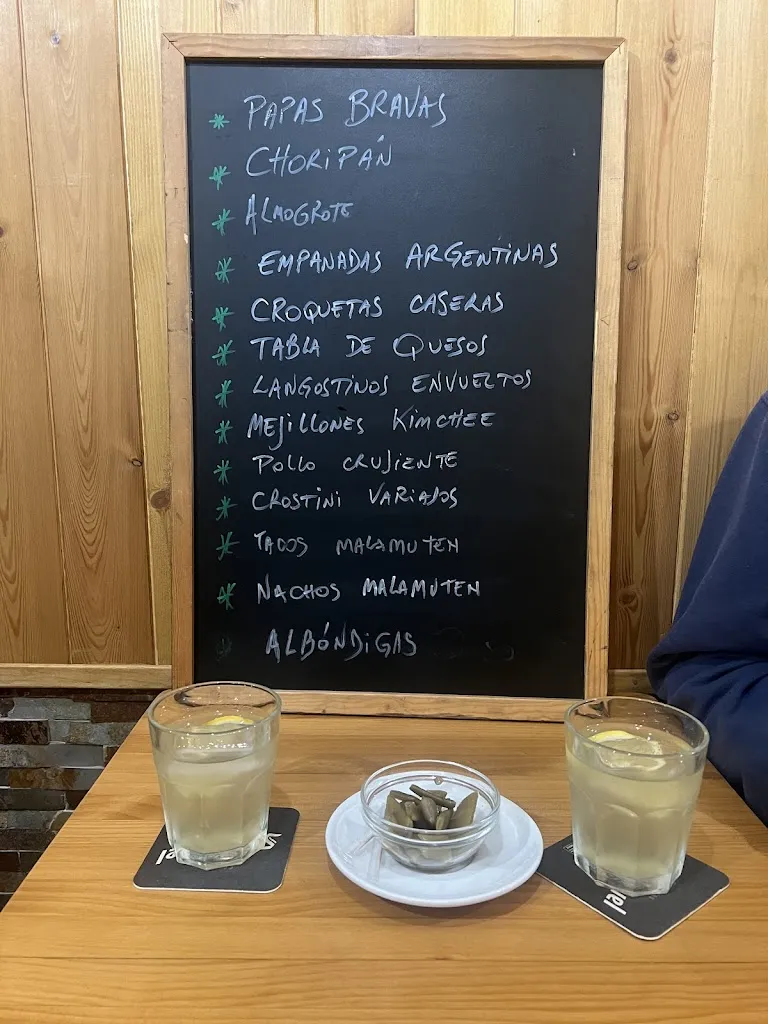 * PAPAS BRAVAS
* CHORIPÁN
* ALMOGROTE
* EMPANADAS ARGENTINAS
* CROQUETAS CASERAS
* TABLA DE QUESOS
* LANGOSTINOS ENVUELTOS
* MEJILLONES KIMCHEE
* POLLO CRUJIENTE
* CROSTINI VARIADOS
* TACOS MALAMUTEN
* NACHOS MALAMUTEN
ALBÓNDIGAS